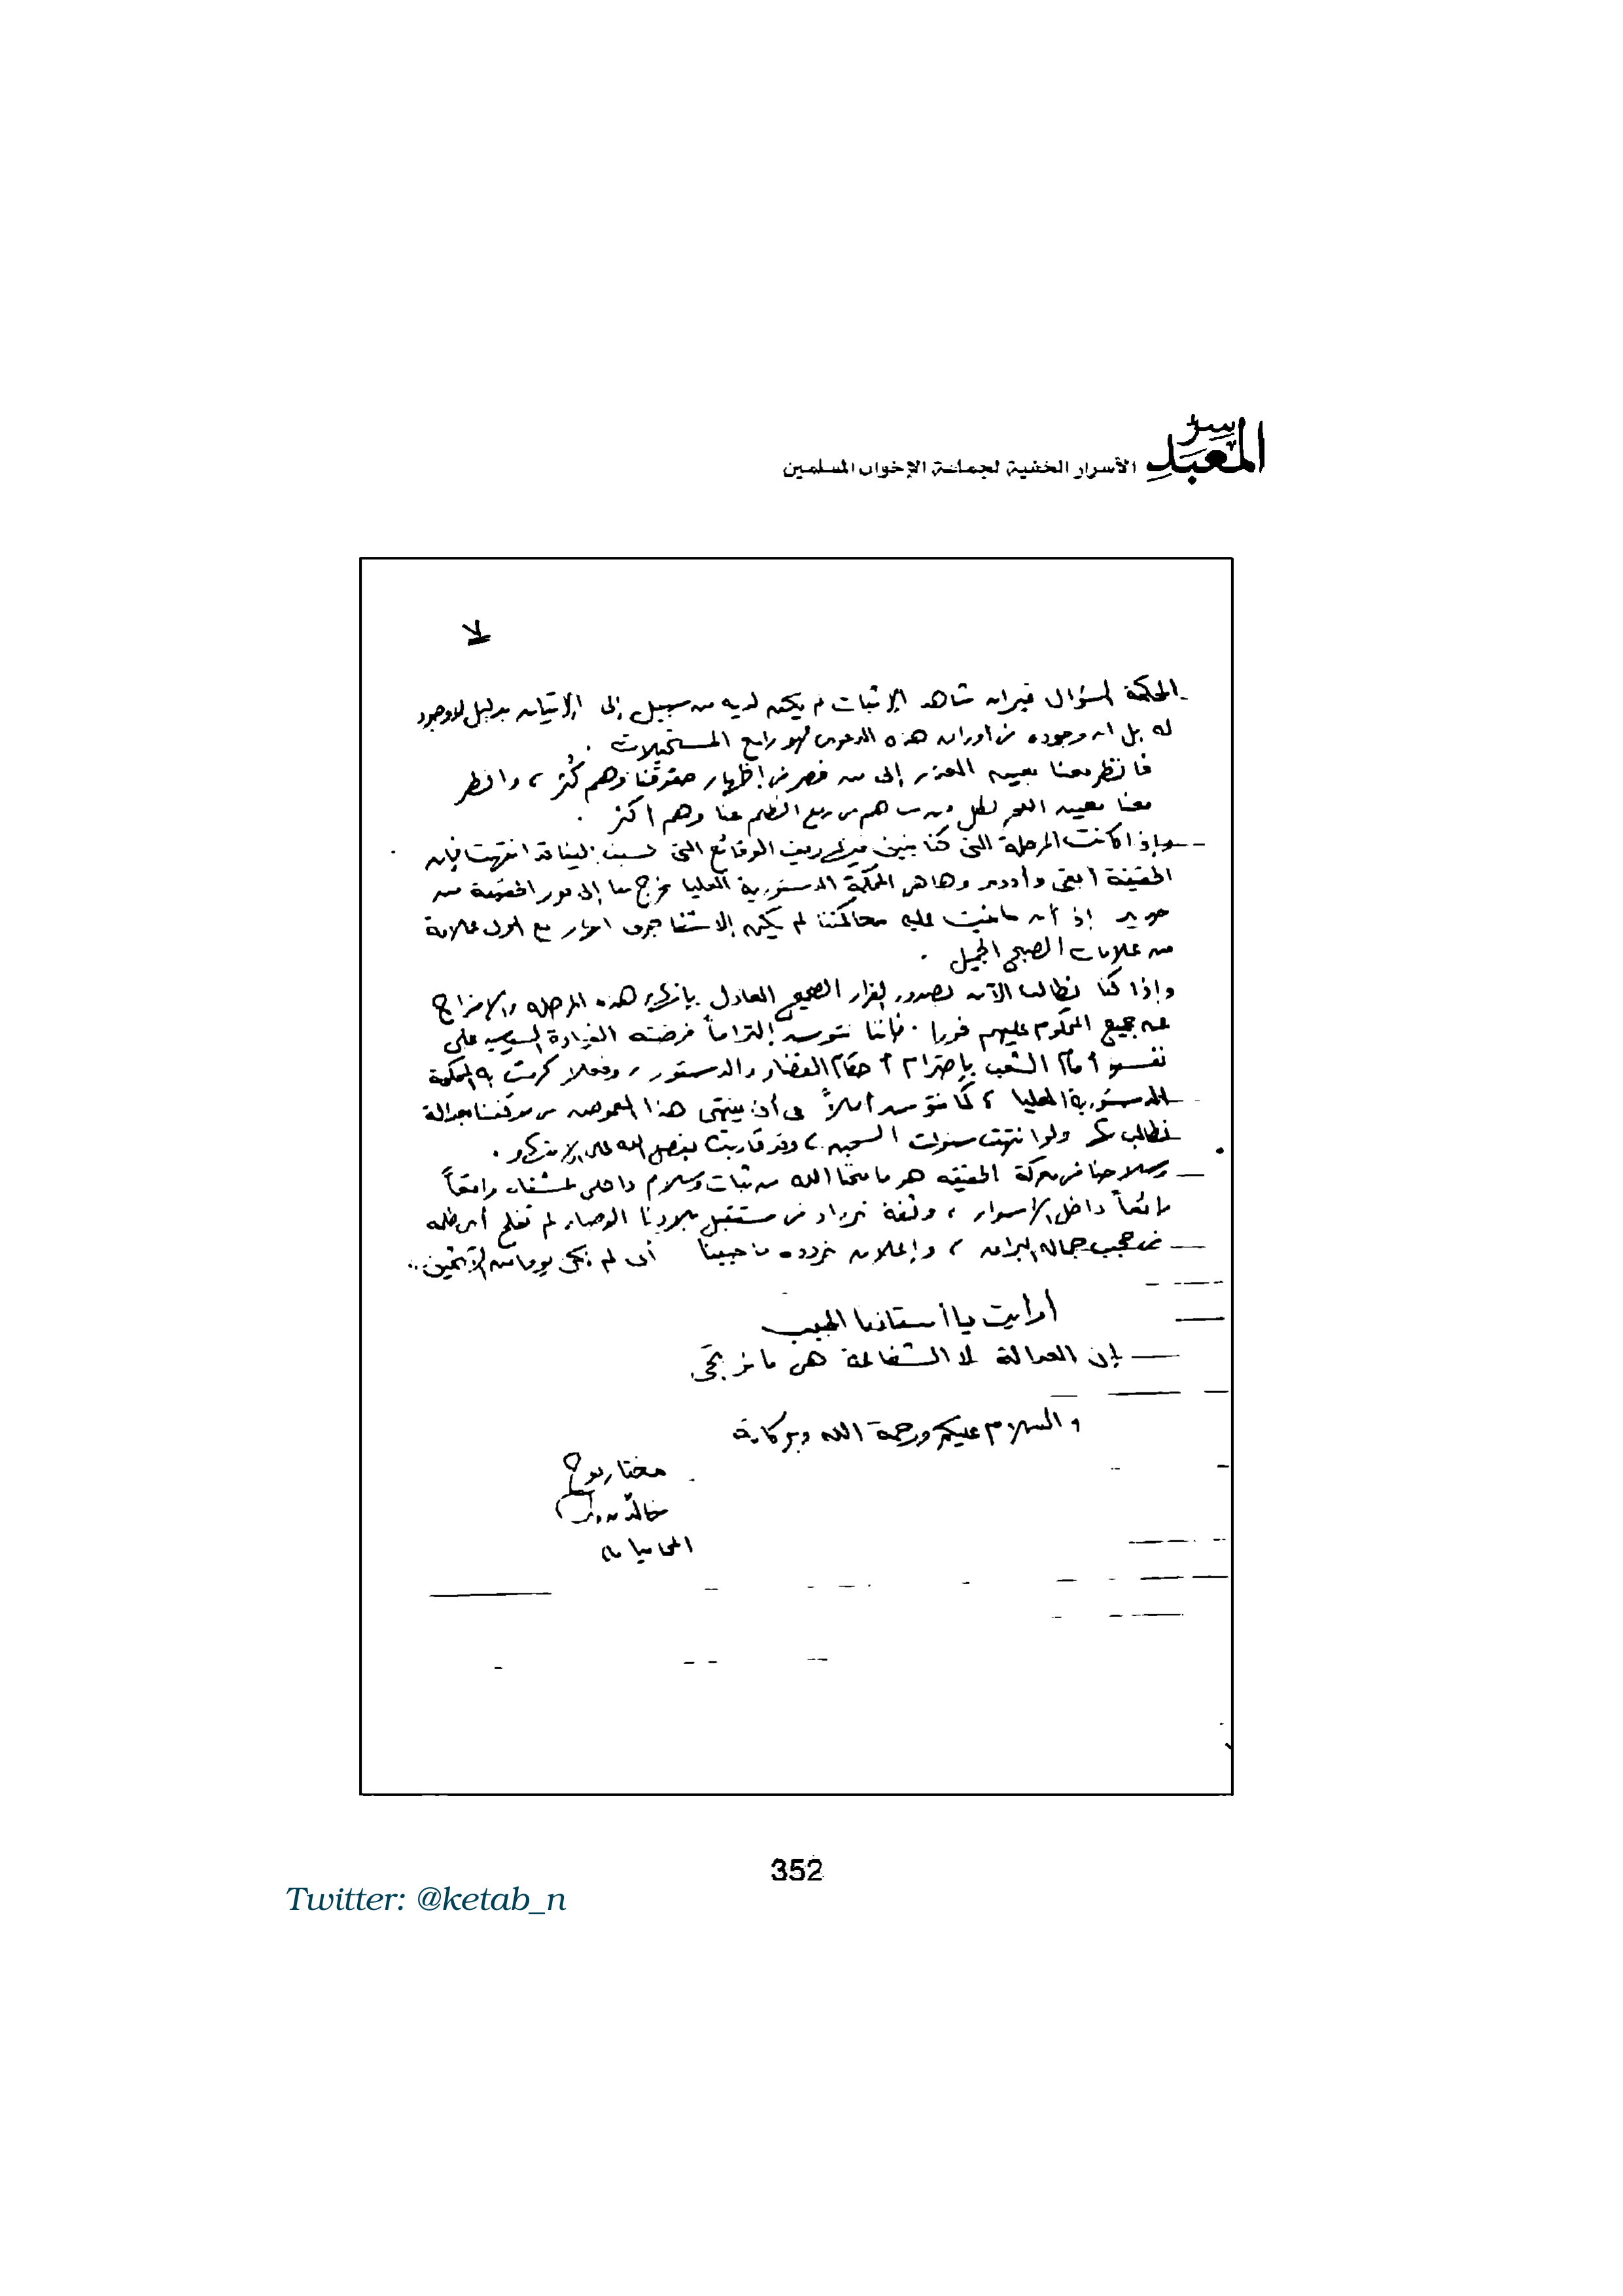 سر
المعبد الأسرار الخفية لجماعة الإخوان المسلمين
٧
المحكمة لسؤال غير أن شاهد الإثبات لم يكن لديه من سبيل إلى الإتيان بدليل لا وجود
له بل أن وجوده في أوراق هذه الدعوى لهو رابع المستحيلات .
فانظر معنا بعين العذر إلى من قصر في إظهار حقوقنا وهم كُثر ، وانظر
معنا بعين لكل من ساهم في رفع الظلم عنا وهم أكثر .
وإذا كانت المرحلة التي كنا فيها زيف الوقائع التي نسبت إلينا قد انتهت فإن
الحقيقة أبقى وها هي المحكمة الدستورية العليا تخرج بنا إلى نور الحقيقة من
جديد إذ أن ما بنيت عليه محاكمتنا لم يكن إلا مع أول علامة
من علامات الصبح الجميل .
وإذا كنا نطالب الآن بصدور القرار الصحيح العادل بإنهاء هذه المرحلة والإفراج
عن جميع المحكوم عليهم فورا . فإننا إلتزاماً فرضته القيادة السياسية على
نفسها أمام الشعب بإحترام أحكام القضاء والدستور ، وفعلا المحكمة
الدستورية العليا ، كما أملاً في أن ينتهي هذا بعدالة
نطالب ولو انتهت سنوات السجن ، وقد قاربت بفضل الله على الإنتهاء .
وسلاحنا في معركة الحقيقة هو ما منحنا الله من ثبات وسلام داخلي
رائعاً داخل الأسوار ، وثقة تزداد في مستقبل بلادنا لم تفلح أي ظلمة
في حجب جماله ، وإعلان نردده أن لم نكن يوما من الآثمين ..
أرأيت يا أستاذنا الحبيب
إن العدالة لا الشفاعة هي ما نرتجى
والسلام عليكم ورحمة الله وبركاته
مختار نوح
خالد بدوى
المحاميان
352
Twitter: @ketab_n